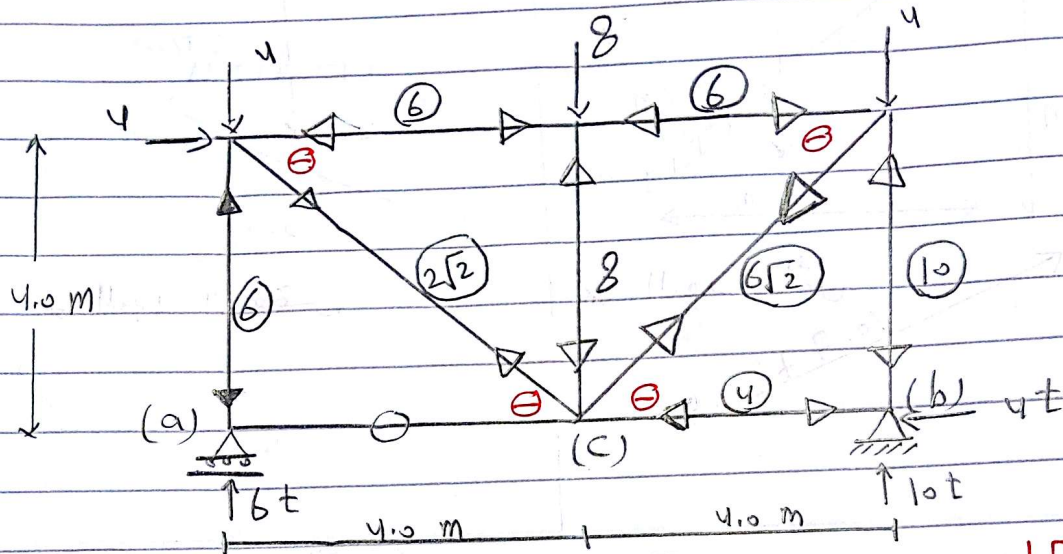 4 8 4
4 6 6
θ θ
4.0 m 6 2√2 8 6√2 10
θ θ 4
(a) 0 (C) (b) 4t
6t 10t
4.0 m 4.0 m